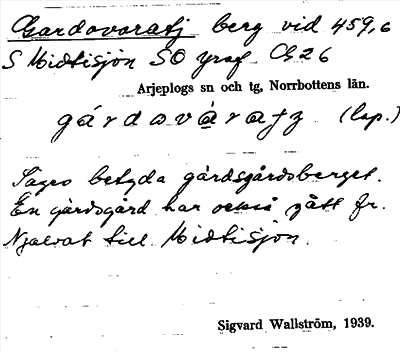 Gardovaratj berg vid 459,6
S Midtisjön SO
Arjeplogs sn och tg, Norrbottens län.
(lap.)
Säges betyda gärdsgårdsberget.
En gärdsgård har också gått fr.
Njalvat till Midtisjön.
Sigvard Wallström, 1939.